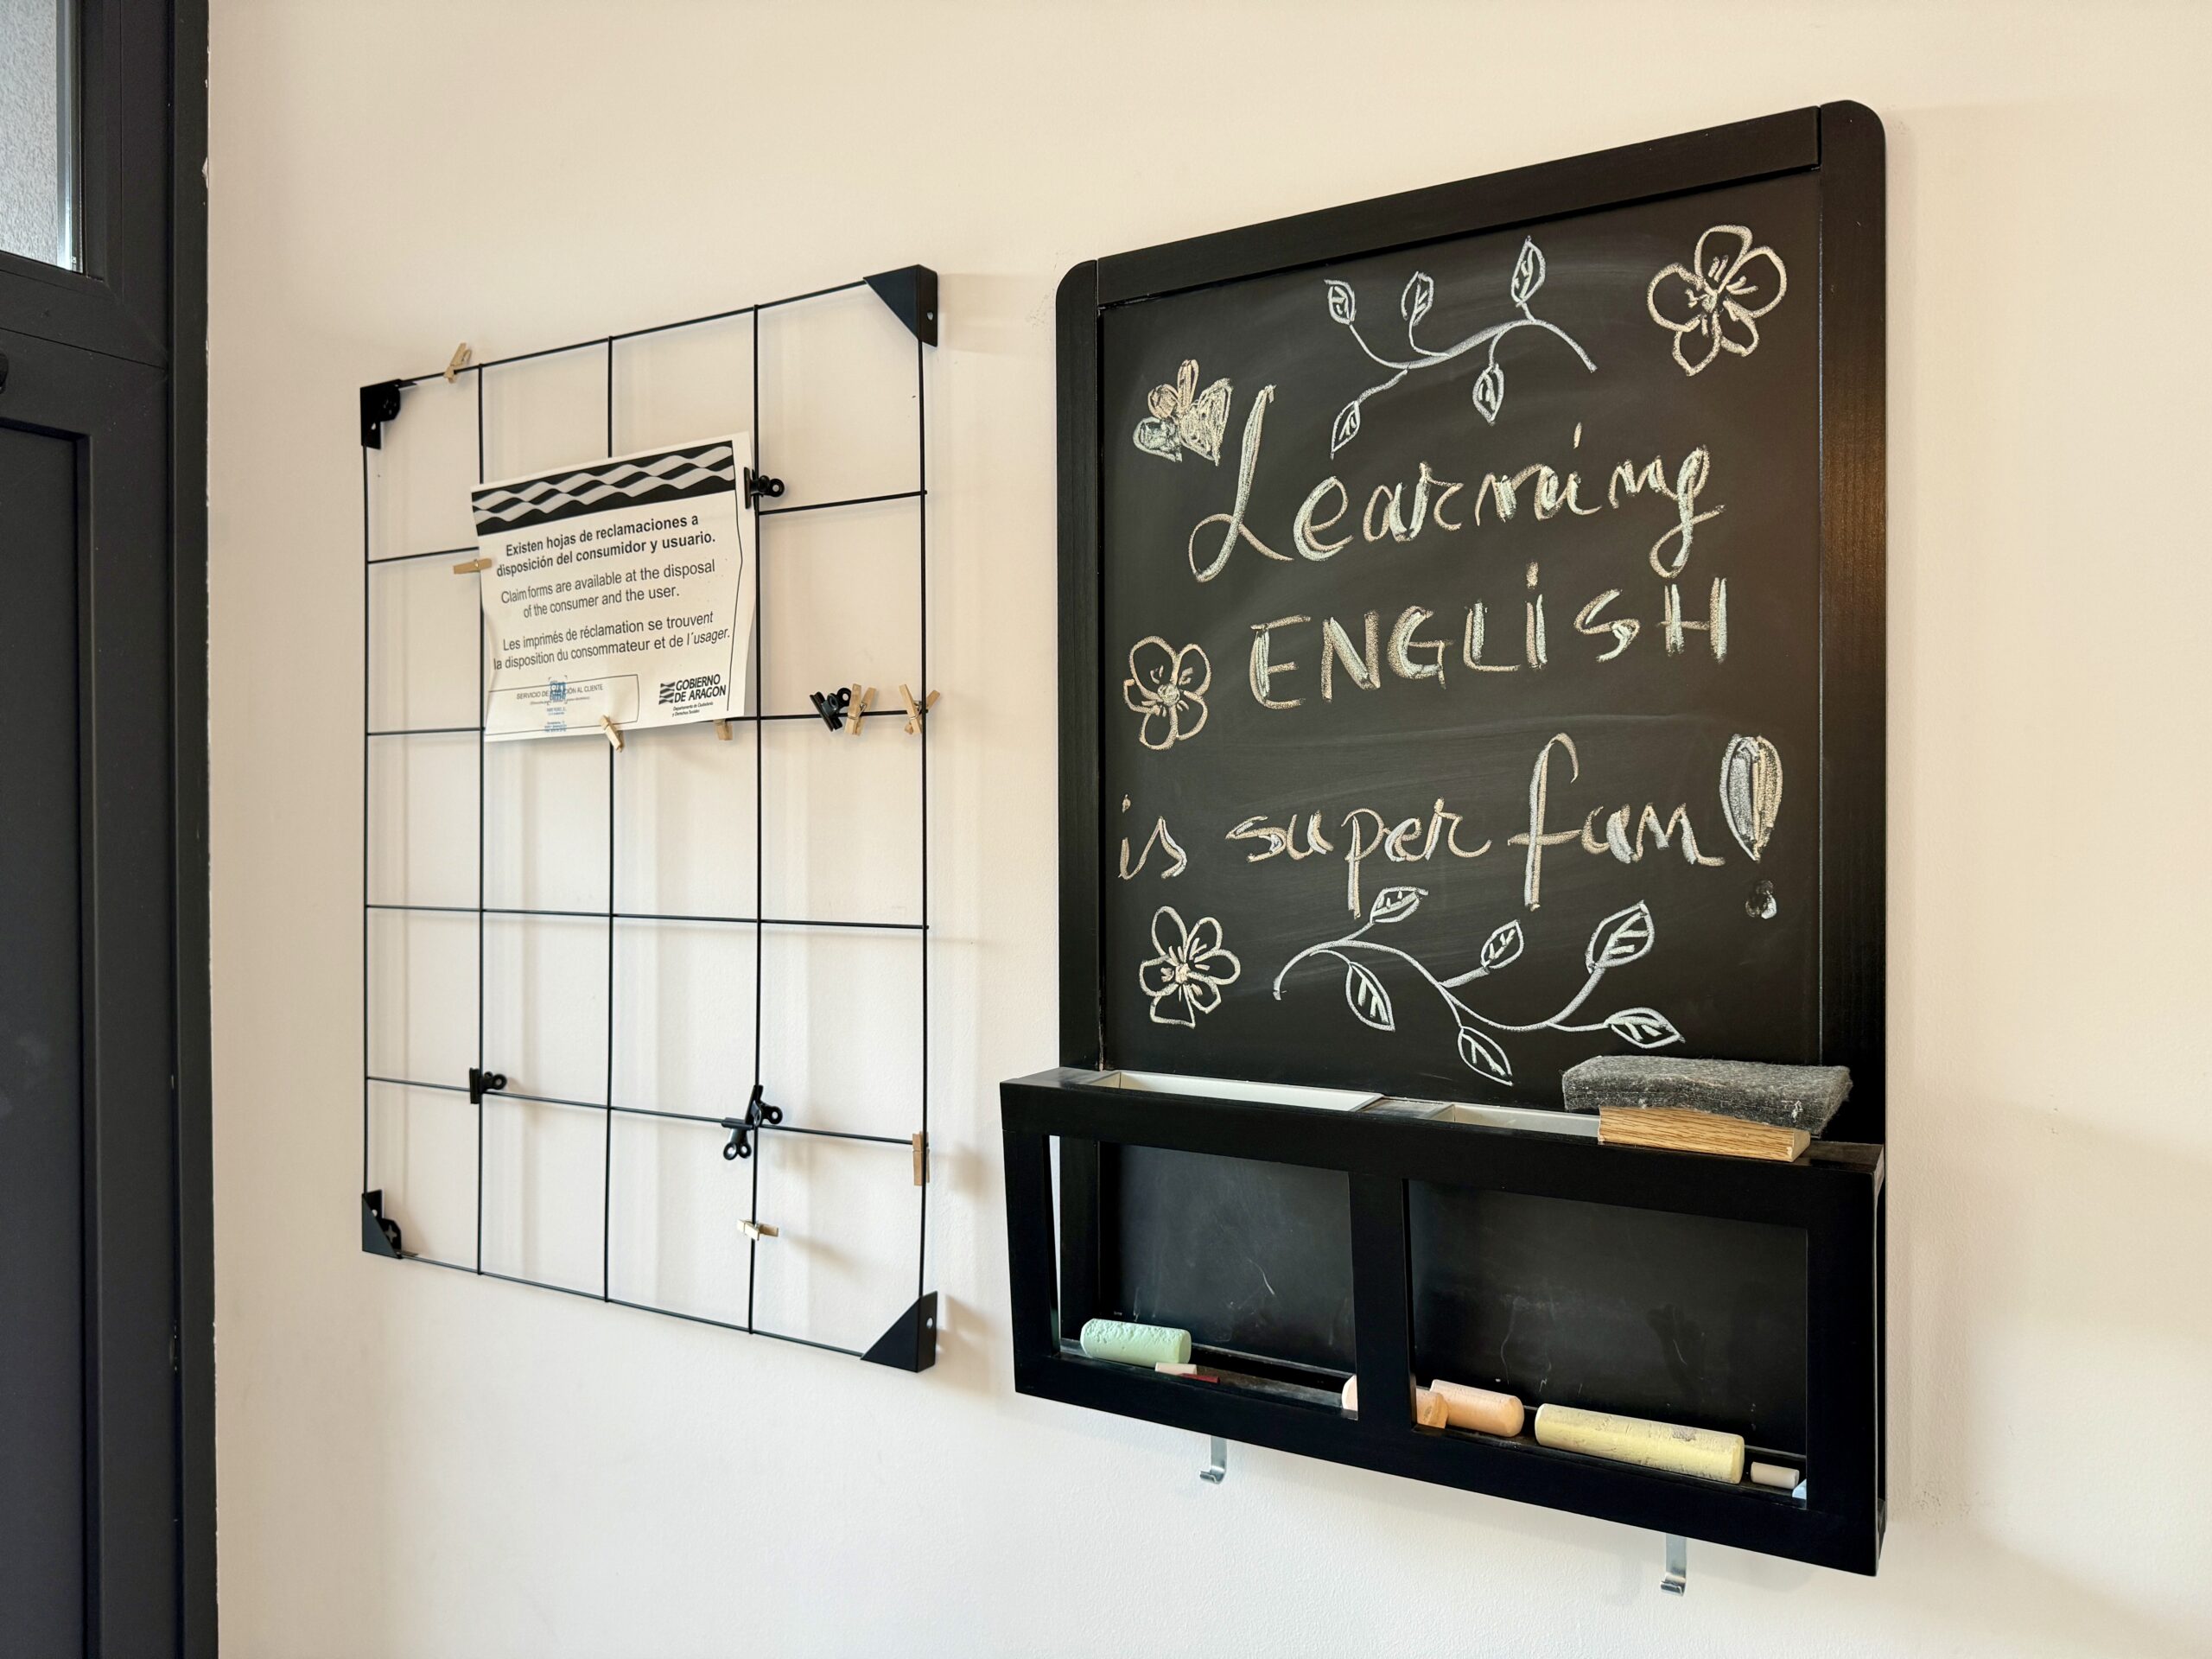 Existen hojas de reclamaciones a
disposición del consumidor y usuario.
Claim forms are available at the disposal
of the consumer and the user.
Les imprimés de réclamation se trouvent
la disposition du consommateur et de l´usager.
SERVICIO DE AL CLIENTE
GOBIERNO
DE ARAGON
Departamento de Ciudadanía
y Derechos Sociales
Learning
ENGLiSH
is super fun!